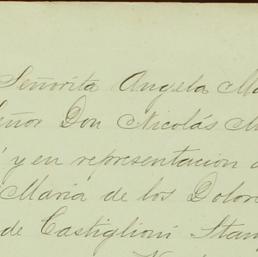 Señorita Angela Ma
eñor Don Nicolás M
y en representacion
Maria de los Dolor
de Castiglioni Stan